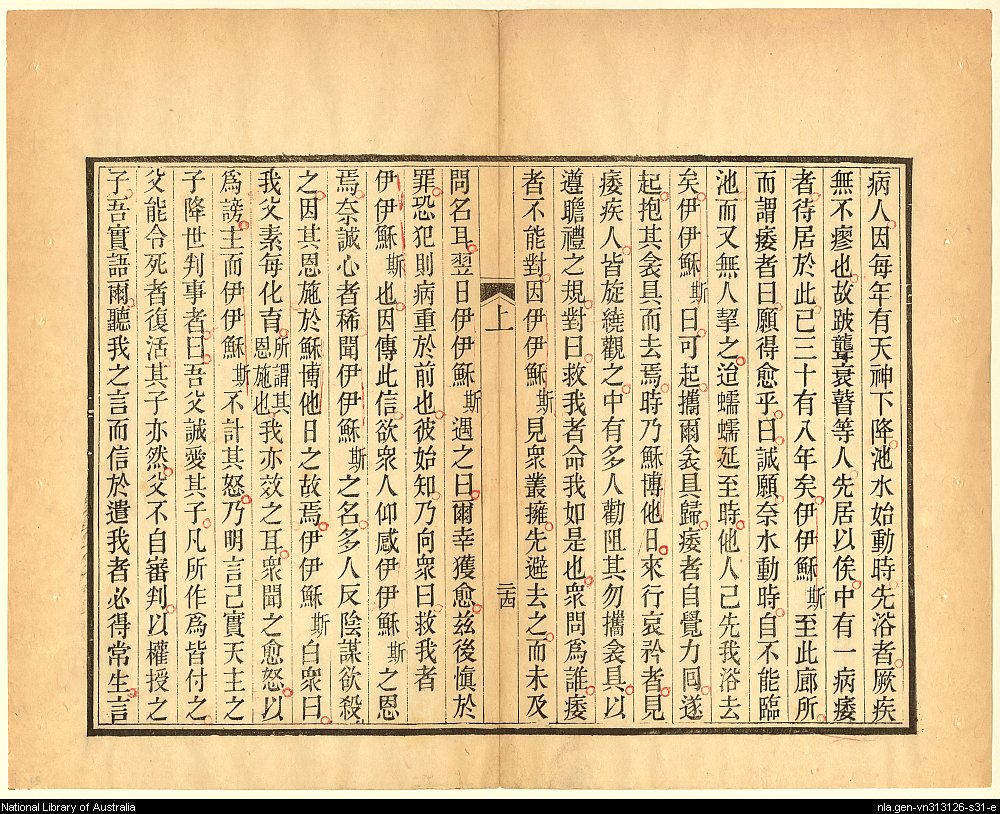 病人因每年有天神下降池水始動時先浴者厥疾
無不瘳也故跛聾衰瞽等人先居以俟中有一病痿
者待居於此已三十有八年矣伊伊穌斯至此廊所
而謂痿者曰願得愈乎曰誠願奈水動時自不能臨
池而又無人挈之迨蠕蠕延至時他人已先我浴去
矣伊伊穌斯曰可起攜爾衾具歸痿者自覺力囘遂
起抱其衾具而去焉時乃穌博他日來行哀矜者見
痿疾人皆旋繞觀之中有多人勸阻其勿攜衾具以
遵瞻禮之規對曰救我者命我如是也衆問爲誰痿
者不能對因伊伊穌斯見衆叢擁先避去之而未及
上
二十四
問名耳翌日伊伊穌斯遇之曰爾幸獲愈茲後愼於
罪恐犯則病重於前也彼始知乃向衆曰救我者
伊伊穌斯也因傳此信欲衆人仰感伊伊穌斯之恩
焉奈誠心者稀聞伊伊穌斯之名多人反陰謀欲殺
之因其恩施於穌博他日之故焉伊伊穌斯白衆曰
我父素每化育所謂其恩施也我亦效之耳衆聞之愈怒以
爲謗主而伊伊穌斯不計其怒乃明言己實天主之
子降世判事者曰吾父誠愛其子凡所作爲皆付之
父能令死者復活其子亦然父不自審判以權授之
子吾實語爾聽我之言而信於遣我者必得常生言
National Library of Australia
nla.gen-vn313126-s31-e